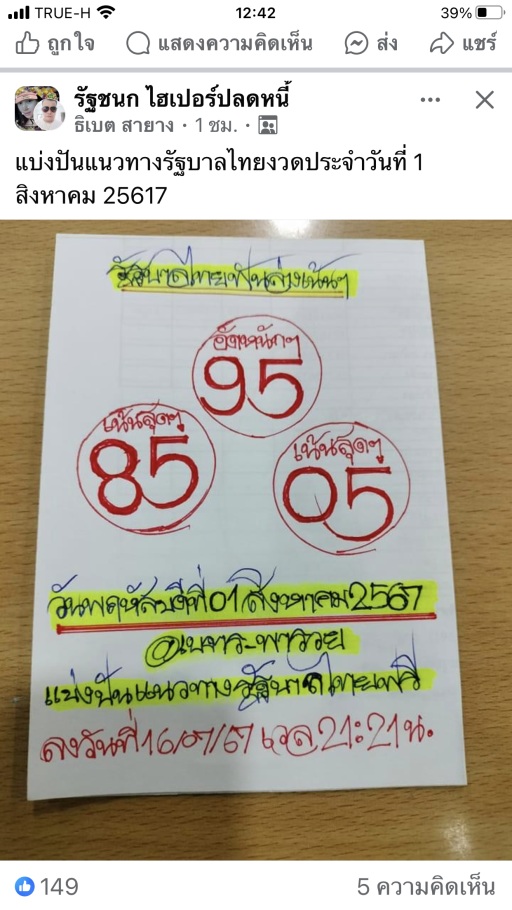 TRUE-H 12:42 39%
ถูกใจ แสดงความคิดเห็น ส่ง แชร์
รัฐชนก ไฮเปอร์ปลดหนี้
ธิเบต สายาง · 1 ชม. ·
แบ่งปันแนวทางรัฐบาลไทยงวดประจำวันที่ 1
สิงหาคม 25617
รัฐบาลไทยฟันล่างเน้นๆ
อั้งหนักๆ
95
เน้นสุดๆ เน้นสุดๆ
85 05
วันพฤหัสบดีที่ 01 สิงหาคม 2567
แบ่งปันแนวทางรัฐบาลไทยฟรี
ลงวันที่ 16/07/67 เวลา 21:21 น.
149 5 ความคิดเห็น